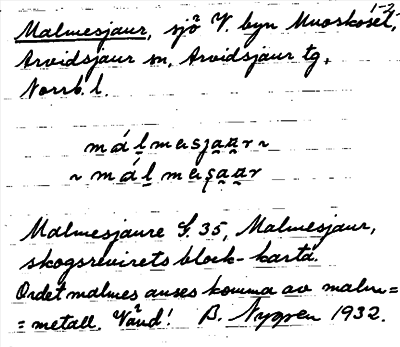 1-2-
Malmesjaur, sjö V. byn Muoskosel,
Arvidsjaur sn, Arvidsjaur tg,
Norrb. l.
málmesjaur ~
~ málmesjaur
Malmesjaure G. 35, Malmesjaur,
skogsrevirets block-karta.
Ordet malmes anses komma av malm=
=metall. Vänd! B. Nygren 1932.